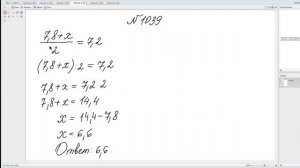 №1039
7,8+x / 2 = 7,2
(7,8+x) 2 = 7,2
7,8+x = 7,2 2
7,8+x = 14,4
x = 14,4-7,8
x = 6,6
Ответ: 6,6